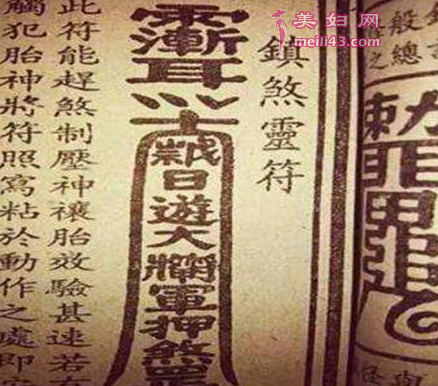 美妇网
meili43.com
般總
之
鎮煞靈符
漸耳
日遊大將軍押煞
此符能趕煞制壓神禳胎效驗甚速若
觸犯胎神將符照寫粘於動作之處即安